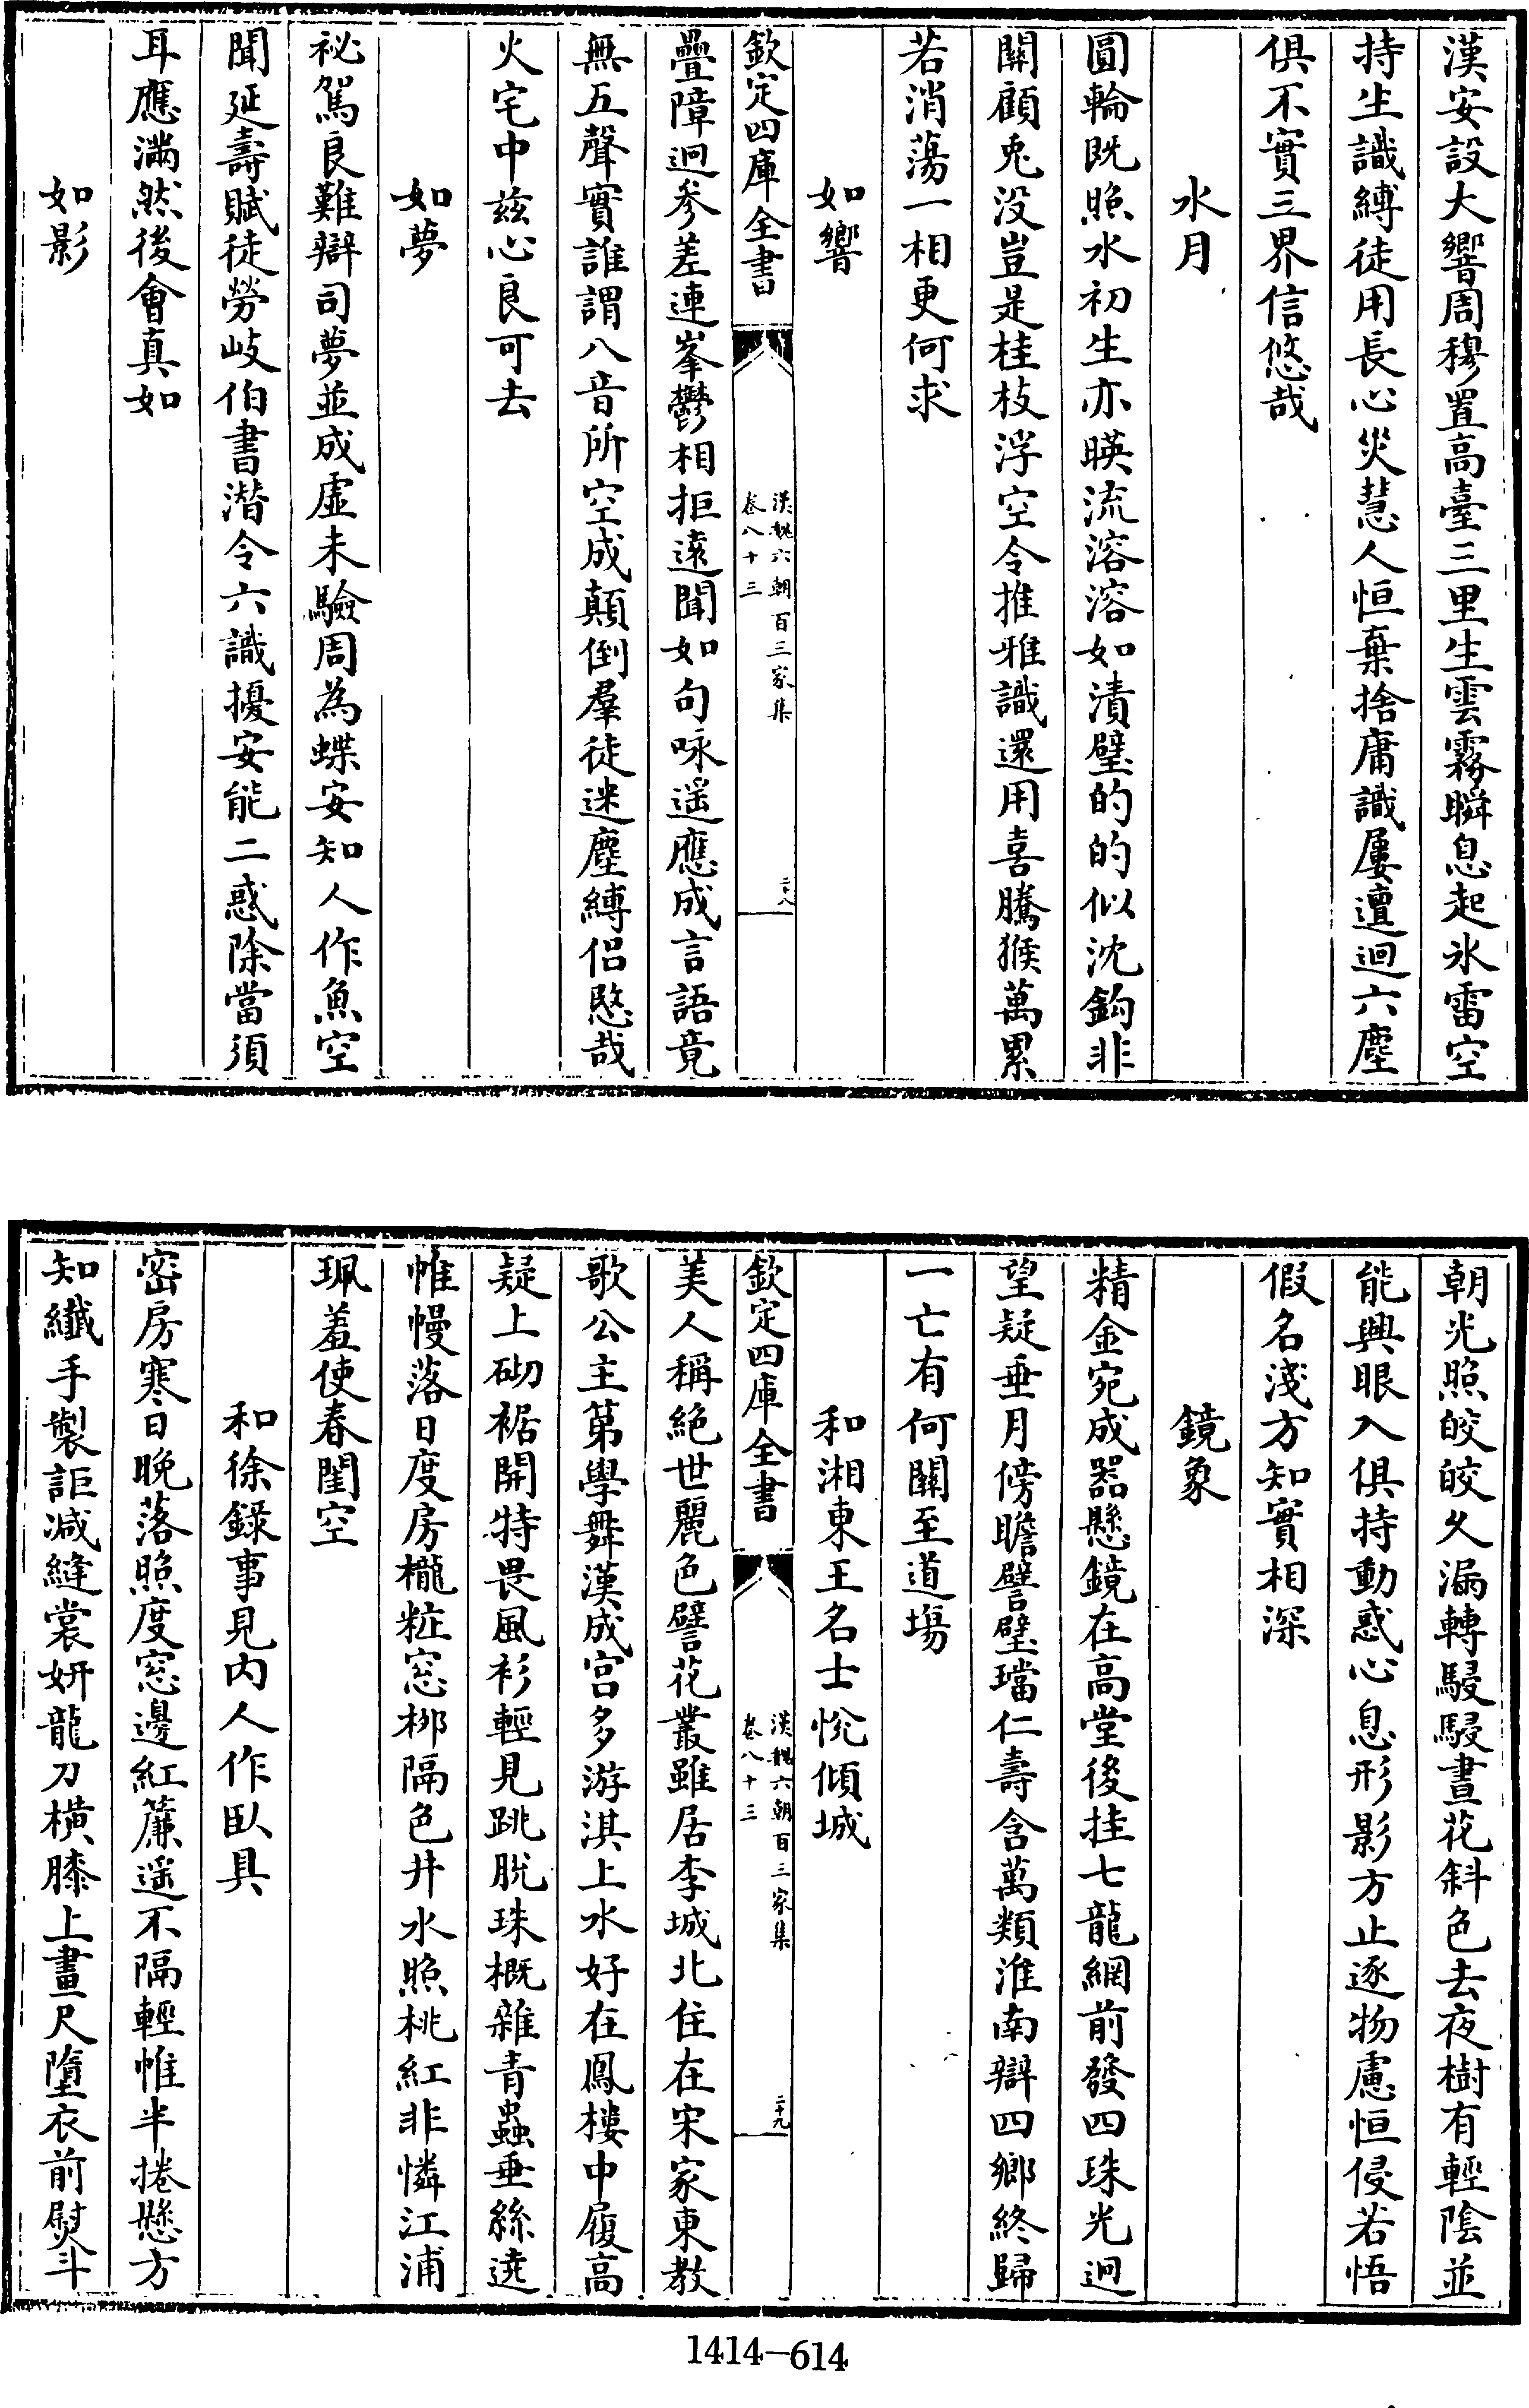 漢安設大響周穆置高臺三里生雲霧瞬息起氷雷空
持生識縛徒用長心災慧人恒棄捨庸識屢邅迴六塵
俱不實三界信悠哉
水月
圓輪既照水初生亦暎流溶溶如漬璧的的似沈鈎非
關顧兎没豈是桂枝浮空令推雅識還用喜騰猴萬累
若消蕩一相更何求
如響
欽定四庫全書
漢魏六朝百三家集
卷八十三
二十八
疊障迥參差連峯鬱相拒遠聞如句咏遥應成言語竟
無五聲實誰謂八音所空成顛倒羣徒迷塵縛侣愍哉
火宅中兹心良可去
如夢
祕駕良難辯司夢並成虛未驗周為蝶安知人作魚空
聞延壽賦徒勞岐伯書潛令六識擾安能二惑除當須
耳應滿然後會真如
如影
朝光照皎皎夕漏轉駸駸晝花斜色去夜樹有輕陰並
能興眼入俱持動惑心息形影方止逐物慮恒侵若悟
假名淺方知實相深
鏡象
精金宛成器懸鏡在高堂後挂七龍網前發四珠光迥
望疑垂月傍瞻譬璧璫仁壽含萬類淮南辯四鄉終歸
一亡有何關至道場
和湘東王名士悅傾城
欽定四庫全書
漢魏六朝百三家集
卷八十三
二十九
美人稱絶世麗色譬花叢雖居李城北住在宋家東教
歌公主第學舞漢成宫多游淇上水好在鳳樓中履高
疑上砌裾開特畏風衫輕見跳脱珠概雜青蟲垂絲遶
帷幔落日度房櫳粧窓栁隔色井水照桃紅非憐江浦
珮羞使春閨空
和徐錄事見内人作臥具
密房寒日晚落照度窓邊紅簾遥不隔輕帷半捲懸方
知纎手製詎減縫裳妍龍刀横膝上畫尺墮衣前熨斗
1414-614